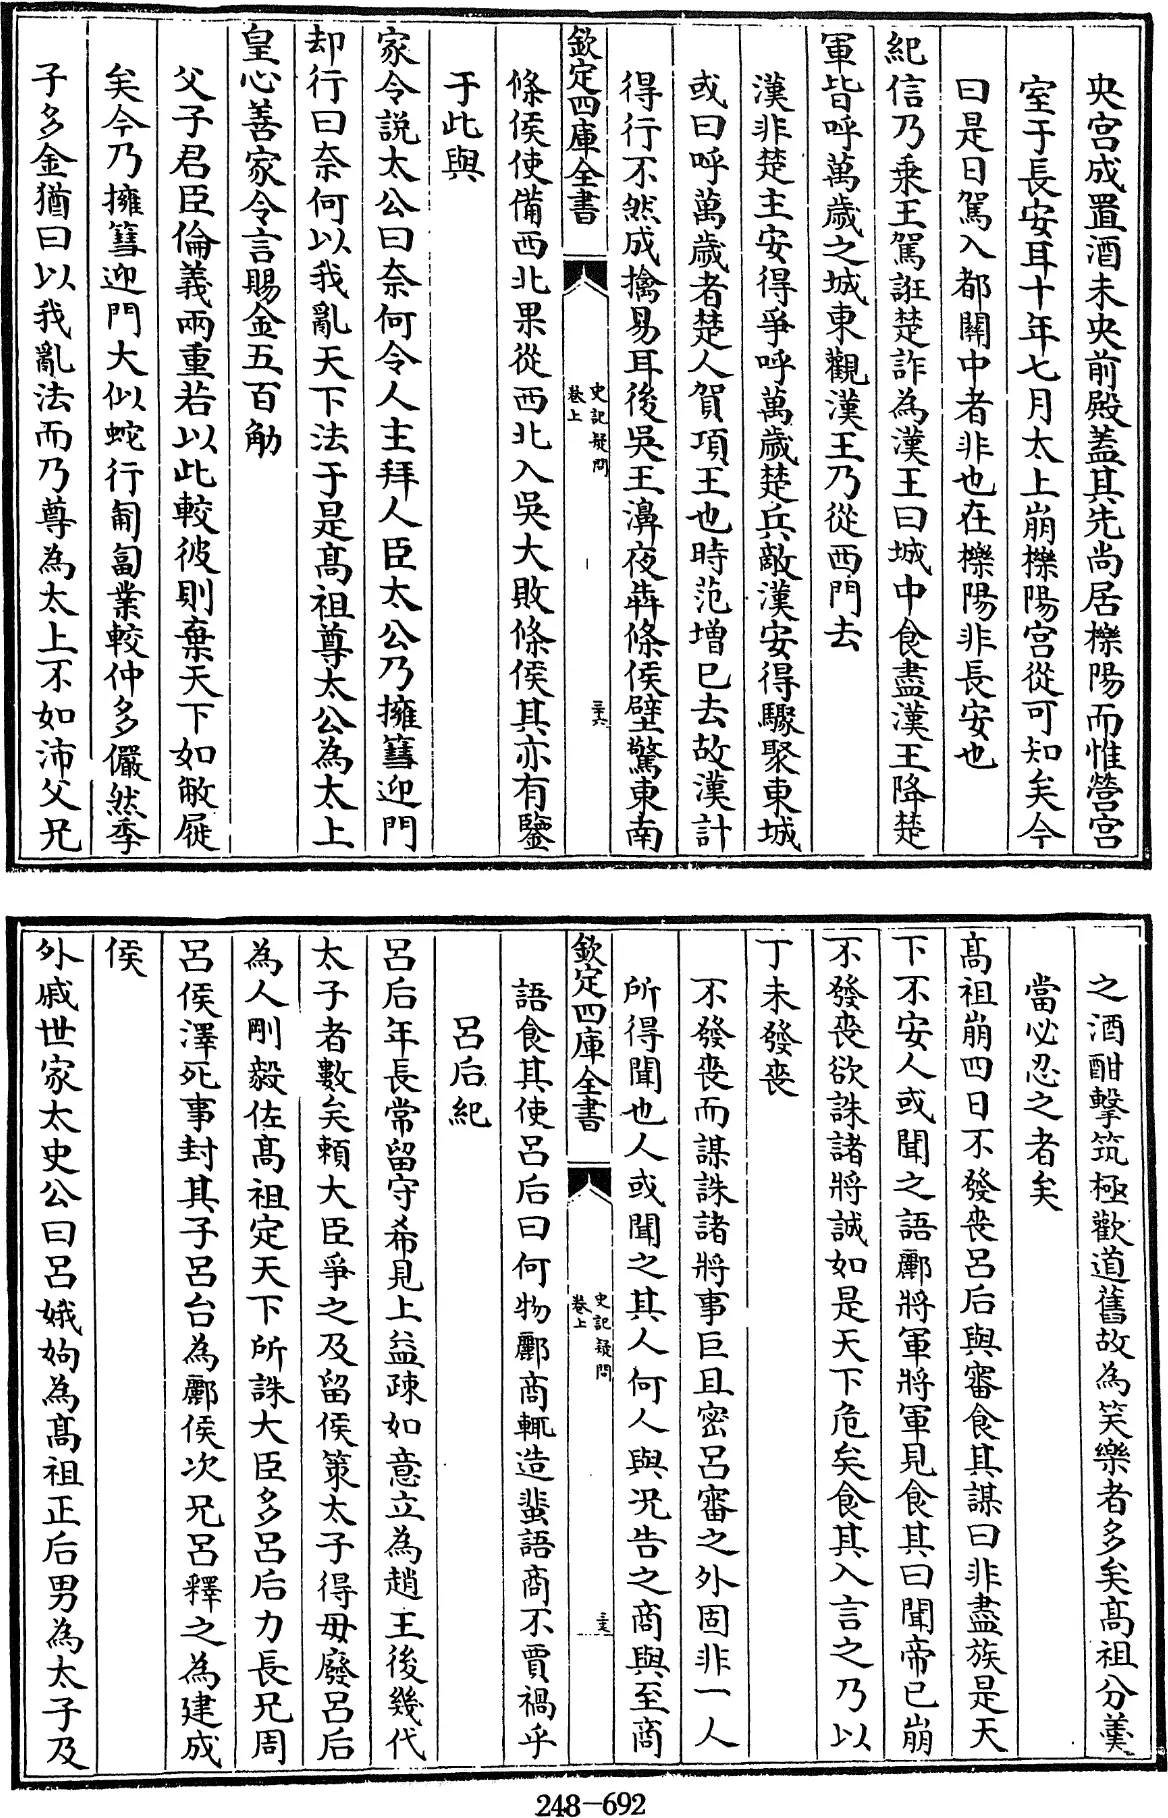 央宫成置酒未央前殿蓋其先尚居櫟陽而惟營宫
室于長安耳十年七月太上崩櫟陽宫從可知矣今
曰是日駕入都關中者非也在櫟陽非長安也
紀信乃乗王駕誑楚詐為漢王曰城中食盡漢王降楚
軍皆呼萬歲之城東觀漢王乃從西門去
漢非楚主安得爭呼萬歲楚兵敵漢安得驟聚東城
或曰呼萬歲者楚人賀項王也時范増已去故漢計
得行不然成擒易耳後吳王濞夜犇條侯壁驚東南
欽定四庫全書
史記疑問
卷上
三六
條侯使備西北果從西北入吳大敗條侯其亦有鑒
于此與
家令説太公曰奈何令人主拜人臣太公乃擁篲迎門
却行曰奈何以我亂天下法于是髙祖尊太公為太上
皇心善家令言賜金五百觔
父子君臣倫義兩重若以此較彼則棄天下如敝屣
矣今乃擁篲迎門大似蛇行匍匐業較仲多儼然季
子多金猶曰以我亂法而乃尊為太上不如沛父兄
之酒酣擊筑極歡道舊故為笑樂者多矣髙祖分羮
當必忍之者矣
髙祖崩四日不發喪呂后與審食其謀曰非盡族是天
下不安人或聞之語酈將軍將軍見食其曰聞帝已崩
不發喪欲誅諸將誠如是天下危矣食其入言之乃以
丁未發喪
不發喪而謀誅諸將事巨且密呂審之外固非一人
所得聞也人或聞之其人何人與况告之商與至商
欽定四庫全書
史記疑問
卷上
語食其使呂后曰何物酈商輒造蜚語商不賈禍乎
呂后紀
呂后年長常留守希見上益疎如意立為趙王後幾代
太子者數矣賴大臣爭之及留侯策太子得毋廢呂后
為人剛毅佐髙祖定天下所誅大臣多呂后力長兄周
呂侯澤死事封其子呂台為酈侯次兄呂釋之為建成
侯
外戚世家太史公曰呂娥姁為髙祖正后男為太子及
248-692